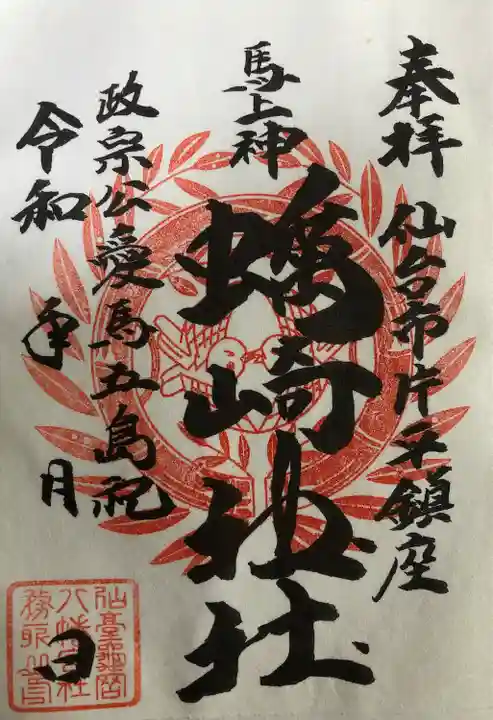 奉拝 仙台市片平鎮座
馬上神
蠣崎神社
政宗公愛馬五島祀
令和 年 月 日
仙臺龜岡
八幡宮社
務所之